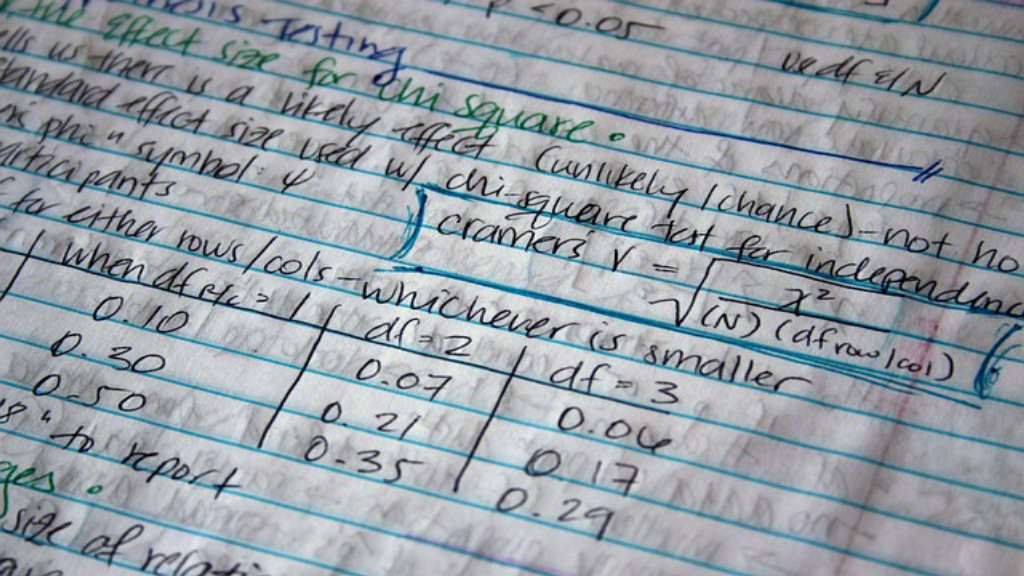 p < 0.05
Testing
ve df &/N
effect size for chi square.
us there is a likely effect (unlikely / chance) - not no
standard effect size used w/ chi-square test for independenc
phi" symbol: φ
participants
cramers V = √ x² / (N) (df row/col)
for either rows/cols - whichever is smaller
when df r/c = 1 | df = 2 | df = 3
0.10 | 0.07 | 0.06
0.30 | 0.21 | 0.17
0.50 | 0.35 | 0.29
" to report
size of relati